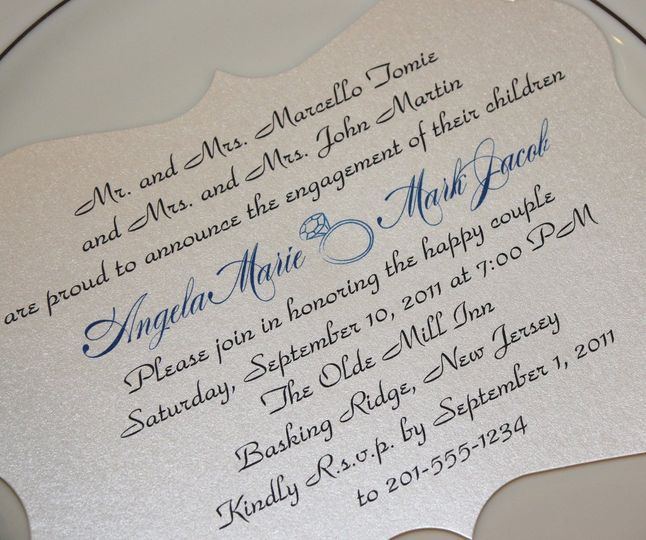 Mr. and Mrs. Marcello Tomie
and Mrs. and Mrs. John Martin
are proud to announce the engagement of their children
Angela Marie Mark Jacob
Please join in honoring the happy couple
Saturday, September 10, 2011 at 7:00 PM
The Olde Mill Inn
Basking Ridge, New Jersey
Kindly R.s.v.p. by September 1, 2011
to 201-555-1234